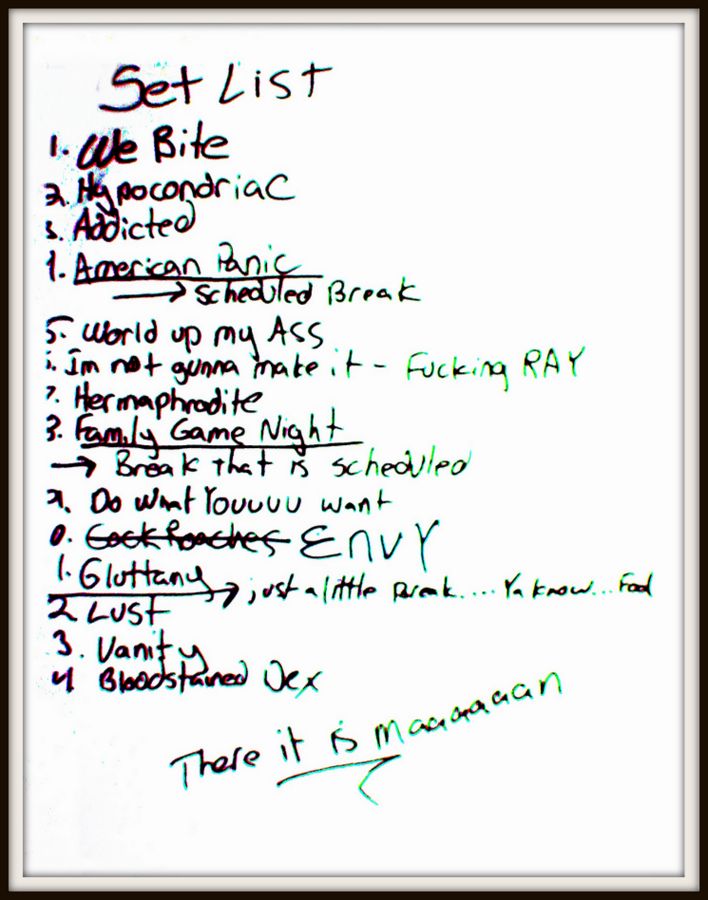 Set List
1. We Bite
2. Hypocondriac
3. Addicted
4. American Panic
→ Scheduled Break
5. World up my Ass
6. Im not gunna make it - Fucking RAY
7. Hermaphrodite
8. Family Game Night
→ Break that is scheduled
9. Do What Youuuu want
0. Cock Roaches ENVY
1. Gluttany → just a little Break.... Ya know... Food
2. Lust
3. Vanity
4 Bloodstained Dex
There it is maaaaaaan